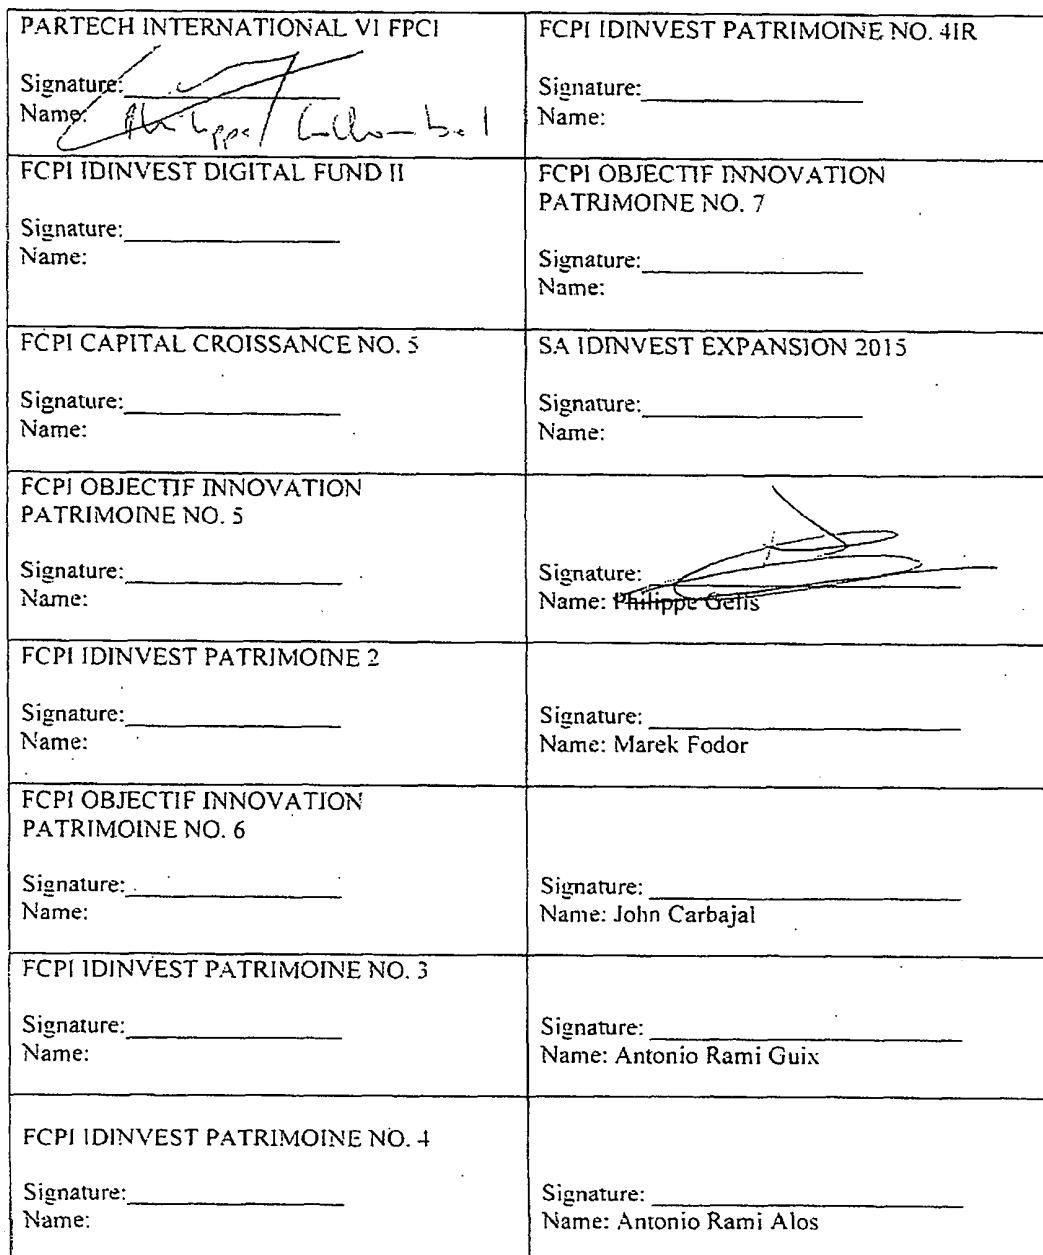 PARTECH INTERNATIONAL VI FPCI
Signature:
Name: Philippe Collombel
FCPI IDINVEST PATRIMOINE NO. 4IR
Signature:
Name:
FCPI IDINVEST DIGITAL FUND II
Signature:
Name:
FCPI OBJECTIF INNOVATION
PATRIMOINE NO. 7
Signature:
Name:
FCPI CAPITAL CROISSANCE NO. 5
Signature:
Name:
SA IDINVEST EXPANSION 2015
Signature:
Name:
FCPI OBJECTIF INNOVATION
PATRIMOINE NO. 5
Signature:
Name:
Signature:
Name: Philippe Gelis
FCPI IDINVEST PATRIMOINE 2
Signature:
Name:
Signature:
Name: Marek Fodor
FCPI OBJECTIF INNOVATION
PATRIMOINE NO. 6
Signature:
Name:
Signature:
Name: John Carbajal
FCPI IDINVEST PATRIMOINE NO. 3
Signature:
Name:
Signature:
Name: Antonio Rami Guix
FCPI IDINVEST PATRIMOINE NO. 4
Signature:
Name:
Signature:
Name: Antonio Rami Alos